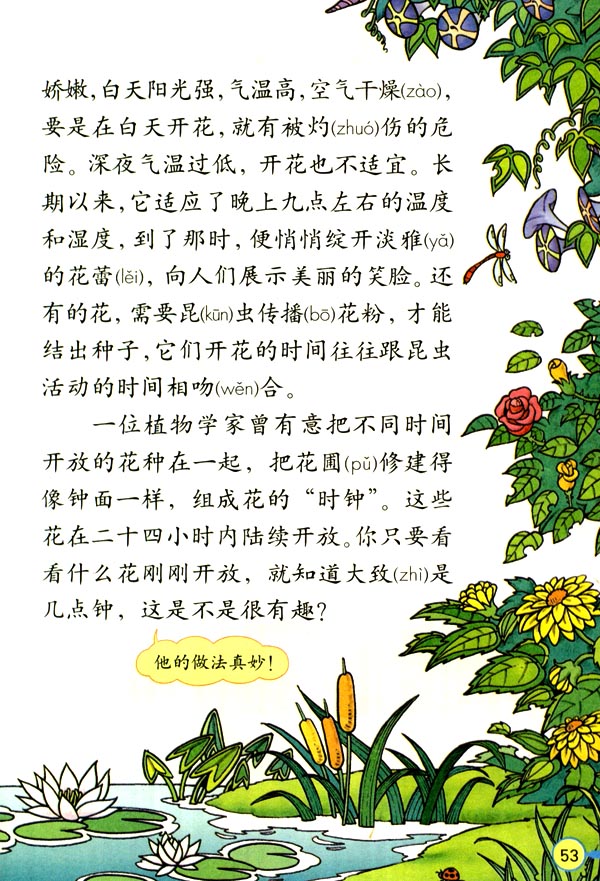 娇嫩，白天阳光强，气温高，空气干燥(zào)，
要是在白天开花，就有被灼(zhuó)伤的危
险。深夜气温过低，开花也不适宜。长
期以来，它适应了晚上九点左右的温度
和湿度，到了那时，便悄悄绽开淡雅(yǎ)
的花蕾(lěi)，向人们展示美丽的笑脸。还
有的花，需要昆(kūn)虫传播(bō)花粉，才能
结出种子，它们开花的时间往往跟昆虫
活动的时间相吻(wěn)合。
一位植物学家曾有意把不同时间
开放的花种在一起，把花圃(pǔ)修建得
像钟面一样，组成花的“时钟”。这些
花在二十四小时内陆续开放。你只要看
看什么花刚刚开放，就知道大致(zhì)是
几点钟，这是不是很有趣？
他的做法真妙！
53